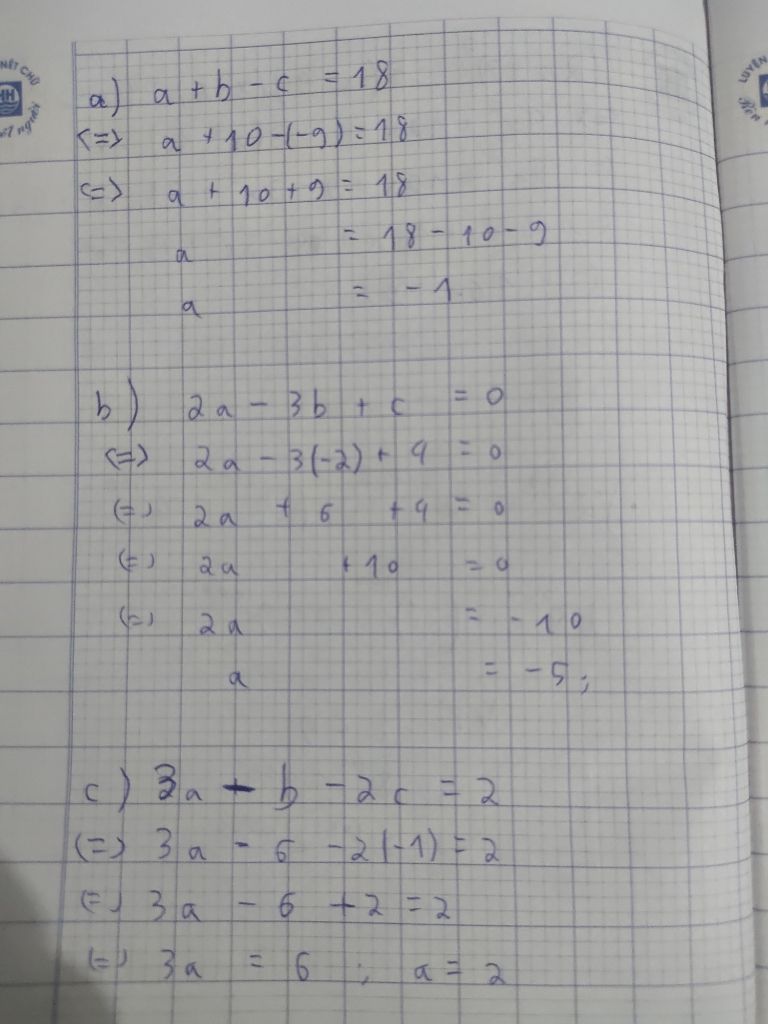 NÉT CHỮ
a) a + b - c = 18
<=> a + 10 - (-9) = 18
<=> a + 10 + 9 = 18
a = 18 - 10 - 9
a = - 1
b) 2a - 3b + c = 0
<=> 2a - 3(-2) + 4 = 0
<=> 2a + 6 + 4 = 0
<=> 2a + 10 = 0
<=> 2a = - 10
a = - 5;
c) 3a - b - 2c = 2
<=> 3a - 6 - 2(-1) = 2
<=> 3a - 6 + 2 = 2
<=> 3a = 6 ; a = 2
LUYỆN